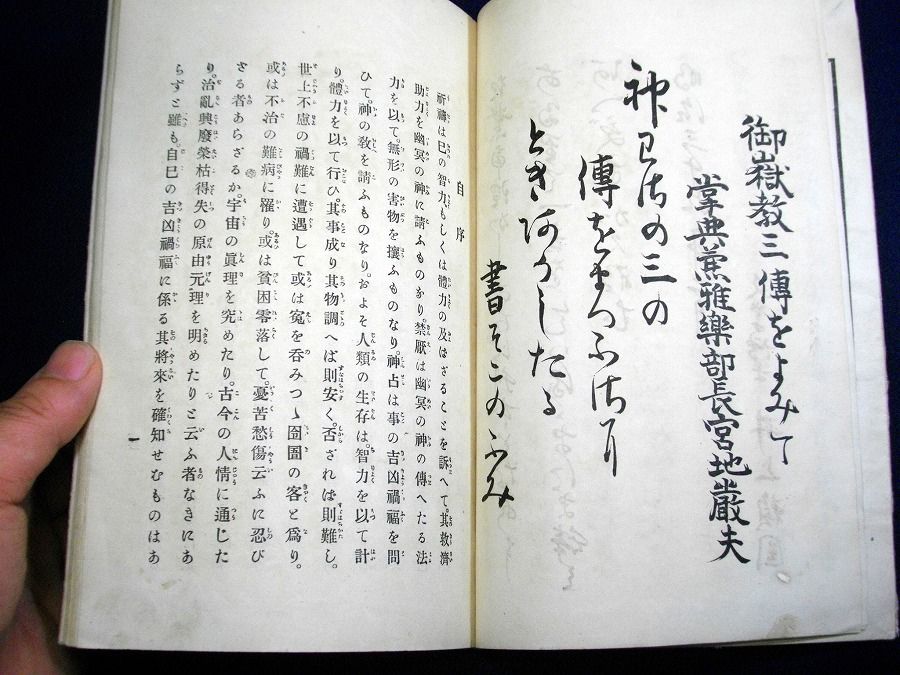 御嶽敎三傳をよみて
掌典兼雅樂部長宮地嚴夫
神わさの三の
傳をまつふさに
ときあかしたる
書そこのふみ
自序
祈禱は巳の智力もしくは體力の及はざることを訴へて其救濟
助力を幽冥の神に請ふものなり禁厭は幽冥の神の傳へたる法
力を以て無形の害物を攘ふものなり神占は事の吉凶禍福を問
ひて神の敎を請ふものなり。およそ人類の生存は智力を以て計
り體力を以て行ひ其事成り其物調へば則安く否ざれば則難し。
世上不慮の禍難に遭遇して或は寃を呑みつゝ囹圄の客と爲り。
或は不治の難病に罹り或は貧困零落して憂苦愁傷云ふに忍び
ざる者あらざるか宇宙の眞理を究めたり古今の人情に通じた
り。治亂興廢榮枯得失の原由元理を明めたりと云ふ者なきにあ
らずと雖も自巳の吉凶禍福に係る其將來を確知せむものはあ
一